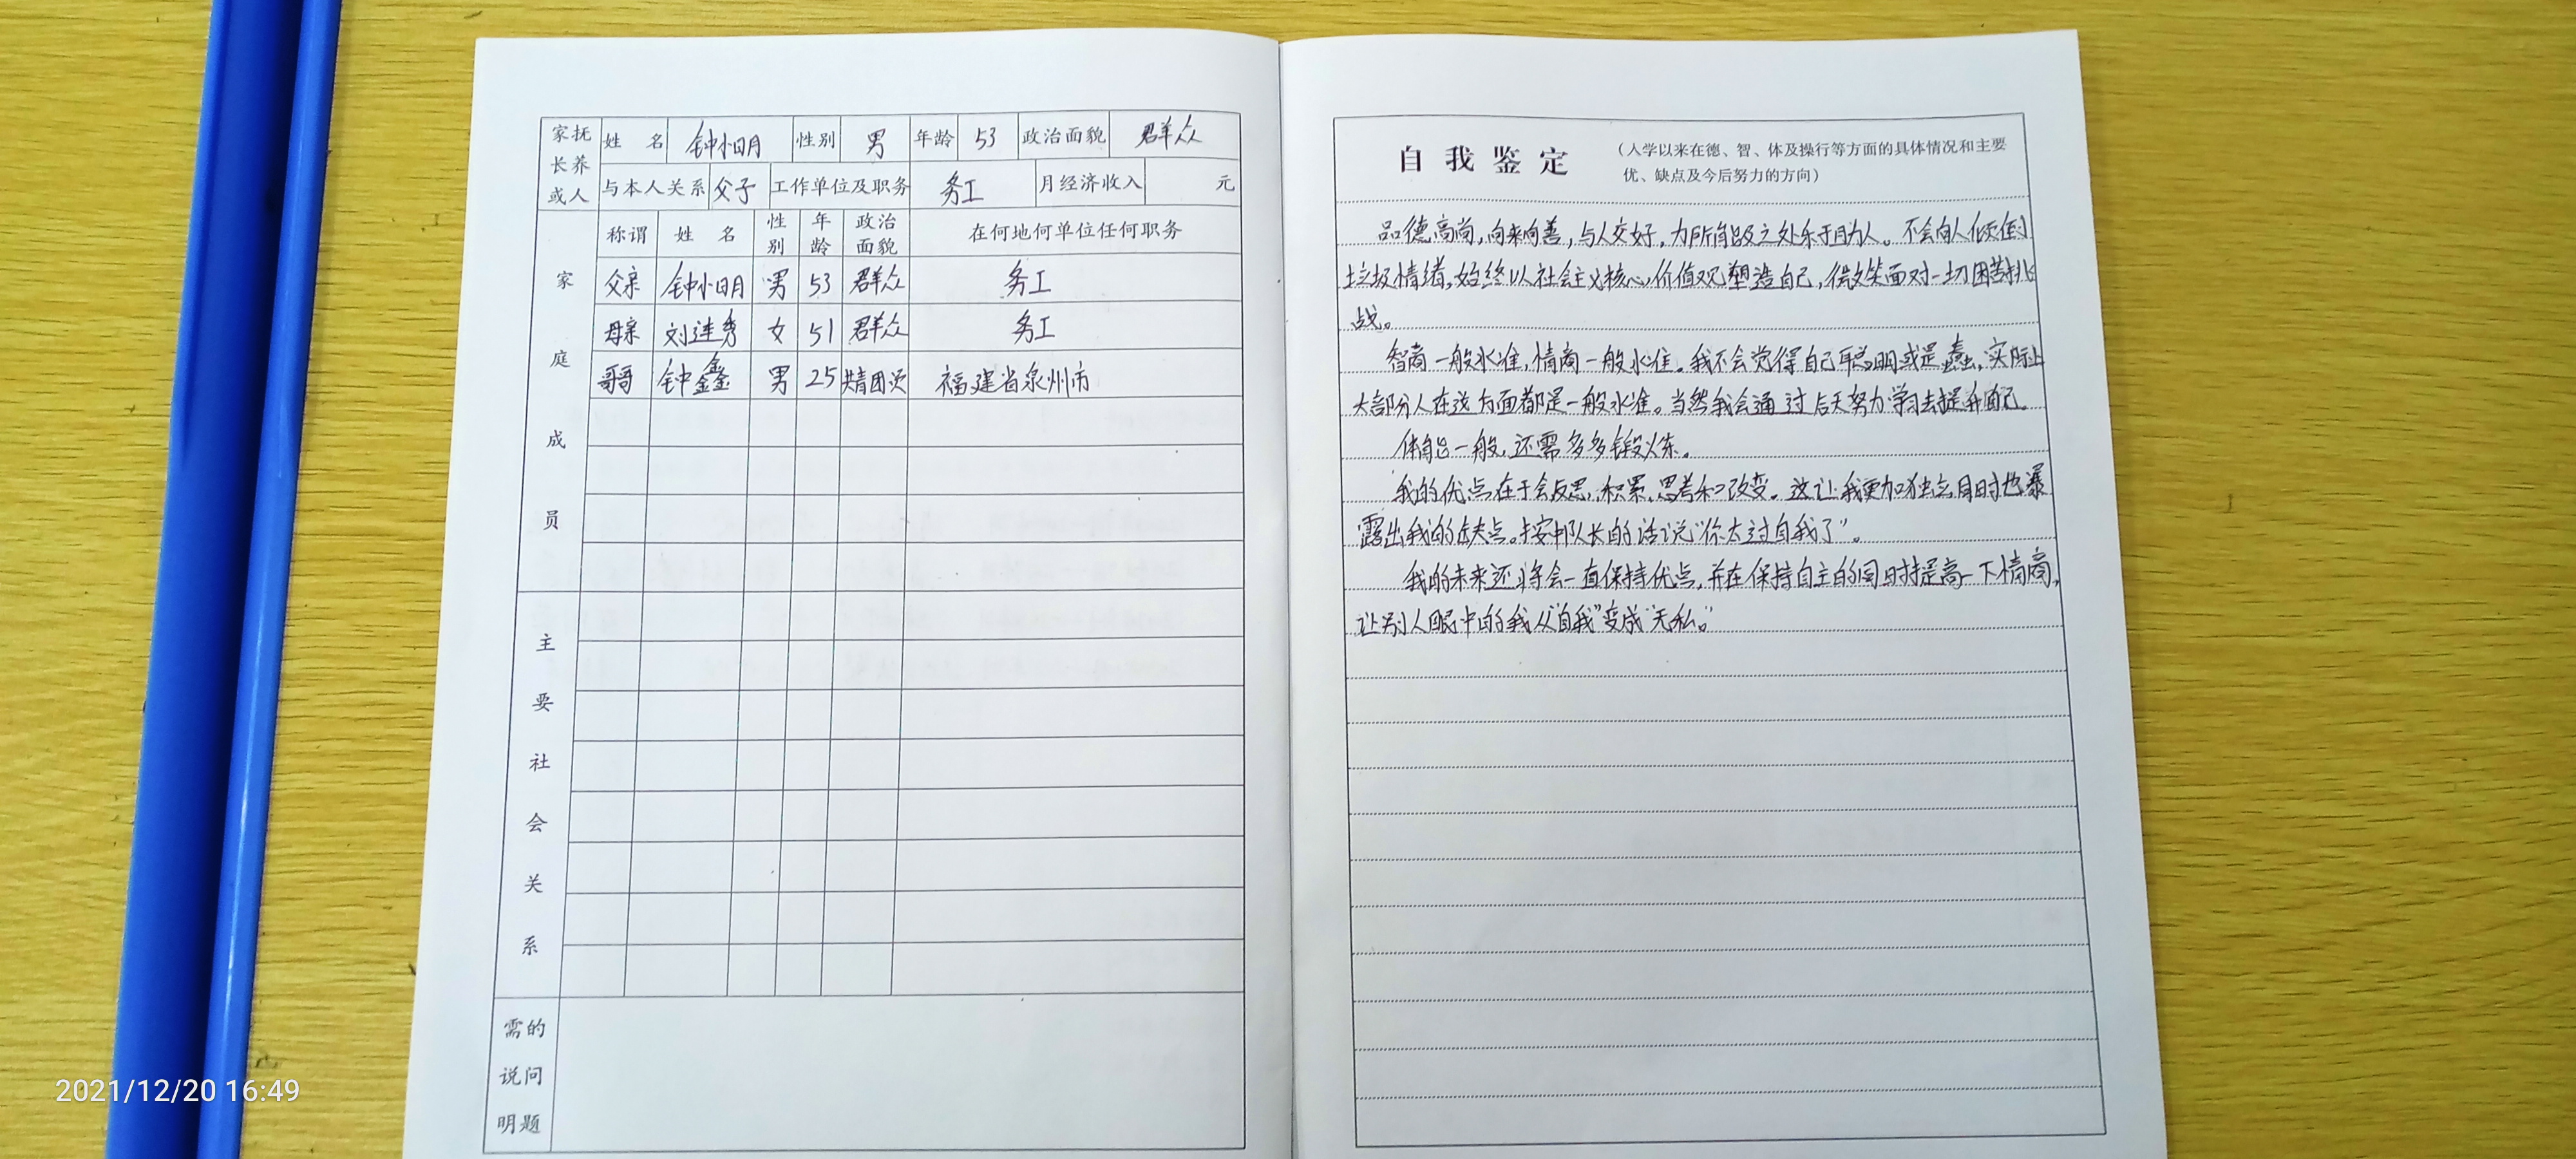 家长或抚养人 姓名 钟小明 性别 男 年龄 53 政治面貌 群众
与本人关系 父子 工作单位及职务 务工 月经济收入 元
家庭成员 称谓 姓名 性别 年龄 政治面貌 在何地何单位任何职务
父亲 钟小明 男 53 群众 务工
母亲 刘连秀 女 51 群众 务工
哥哥 钟鑫 男 25 共青团员 福建省泉州市
主要社会关系
需说明的问题
自我鉴定 （入学以来在德、智、体及操行等方面的具体情况和主要
优、缺点及今后努力的方向）
品德高尚，向来向善，与人交好，力所能及之处乐于助人。不会向人倾倒
垃圾情绪，始终以社会主义核心价值观塑造自己，微笑面对一切困苦挑
战。
智商一般水准，情商一般水准。我不会觉得自己聪明或是蠢，实际上
大部分人在这方面都是一般水准。当然我会通过后天努力学习去提升自己。
体能一般，还需多多锻炼。
我的优点在于会反思，积累，思考和改变。这让我更加独立同时也暴
露出我的缺点。按中队长的话说“你太过自我了”。
我的未来还将会一直保持优点，并在保持自主的同时提高一下情商，
让别人眼中的我从“自我”变成“无私。”
2021/12/20 16:49